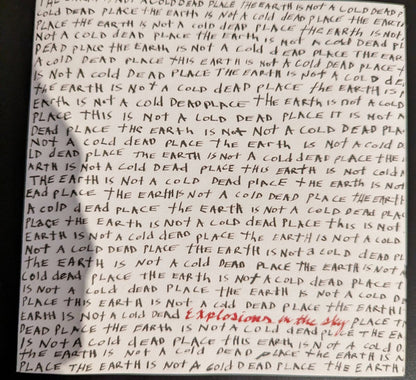 THE EARTH IS NOT A COLD DEAD PLACE THE EARTH IS NOT A COLD DEAD P
COLD DEAD PLACE THE EARTH IS NOT A COLD DEAD PLACE THE EART
NOT A COLD DEAD PLACE THE EARTH IS NOT A COLD DEAD PL
DEAD PLACE THE EARTH IS NOT A COLD DEAD PLACE THE EAR
A COLD DEAD PLACE THIS EARTH IS NOT A COLD DEAD PLACE T
IS NOT A COLD DEAD PLACE THE EARTH IS NOT A COLD DE
THE EARTH IS NOT A COLD DEAD PLACE THE EARTH IS
EARTH IS NOT A COLD DEAD PLACE THE EARTH IS NOT A COLD
PLACE THIS IS NOT A COLD DEAD PLACE IT IS NOT A
DEAD PLACE THE EARTH IS NOT A COLD DEAD PLA
NOT A COLD DEAD PLACE THE EARTH IS NOT A COLD DE
LD DEAD PLACE THE EARTH IS NOT A COLD DEAD PLACE THE
ARTH IS NOT A COLD DEAD PLACE THIS EARTH IS NOT COLD
THE EARTH IS NOT A COLD DEAD PLACE THE EARTH IS NOT
EAD PLACE THE EARTH IS NOT A COLD DEAD PLACE THE EARTH
A COLD DEAD PLACE THE EARTH IS NOT A COLD DEAD PLAC
PLACE THE EARTH IS NOT A COLD DEAD PLACE THIS IS NOT
EARTH IS NOT A COLD DEAD PLACE THE EARTH IS NOT A COLD
NOT A COLD DEAD PLACE THE EARTH IS NOT A COLD DEAD
THE EARTH IS NOT A COLD DEAD PLACE THE EARTH IS NOT
COLD DEAD PLACE THE EARTH IS NOT A COLD DEAD PLACE T
IS NOT A COLD DEAD PLACE THE EARTH IS NOT A COLD D
PLACE THIS EARTH IS NOT A COLD DEAD PLACE THE EARTH I
EARTH IS NOT A COLD DEAD Explosions in the sky PLACE T
DEAD PLACE THE EARTH IS NOT A COLD DEAD PLACE THE E
IS NOT A COLD DEAD PLACE THIS EARTH IS NOT A COLD D
THE EARTH IS NOT A COLD DEAD PLACE THE EARTH IS N
PLACE THE EARTH IS NOT A COLD DEAD PLACE THE EARTH